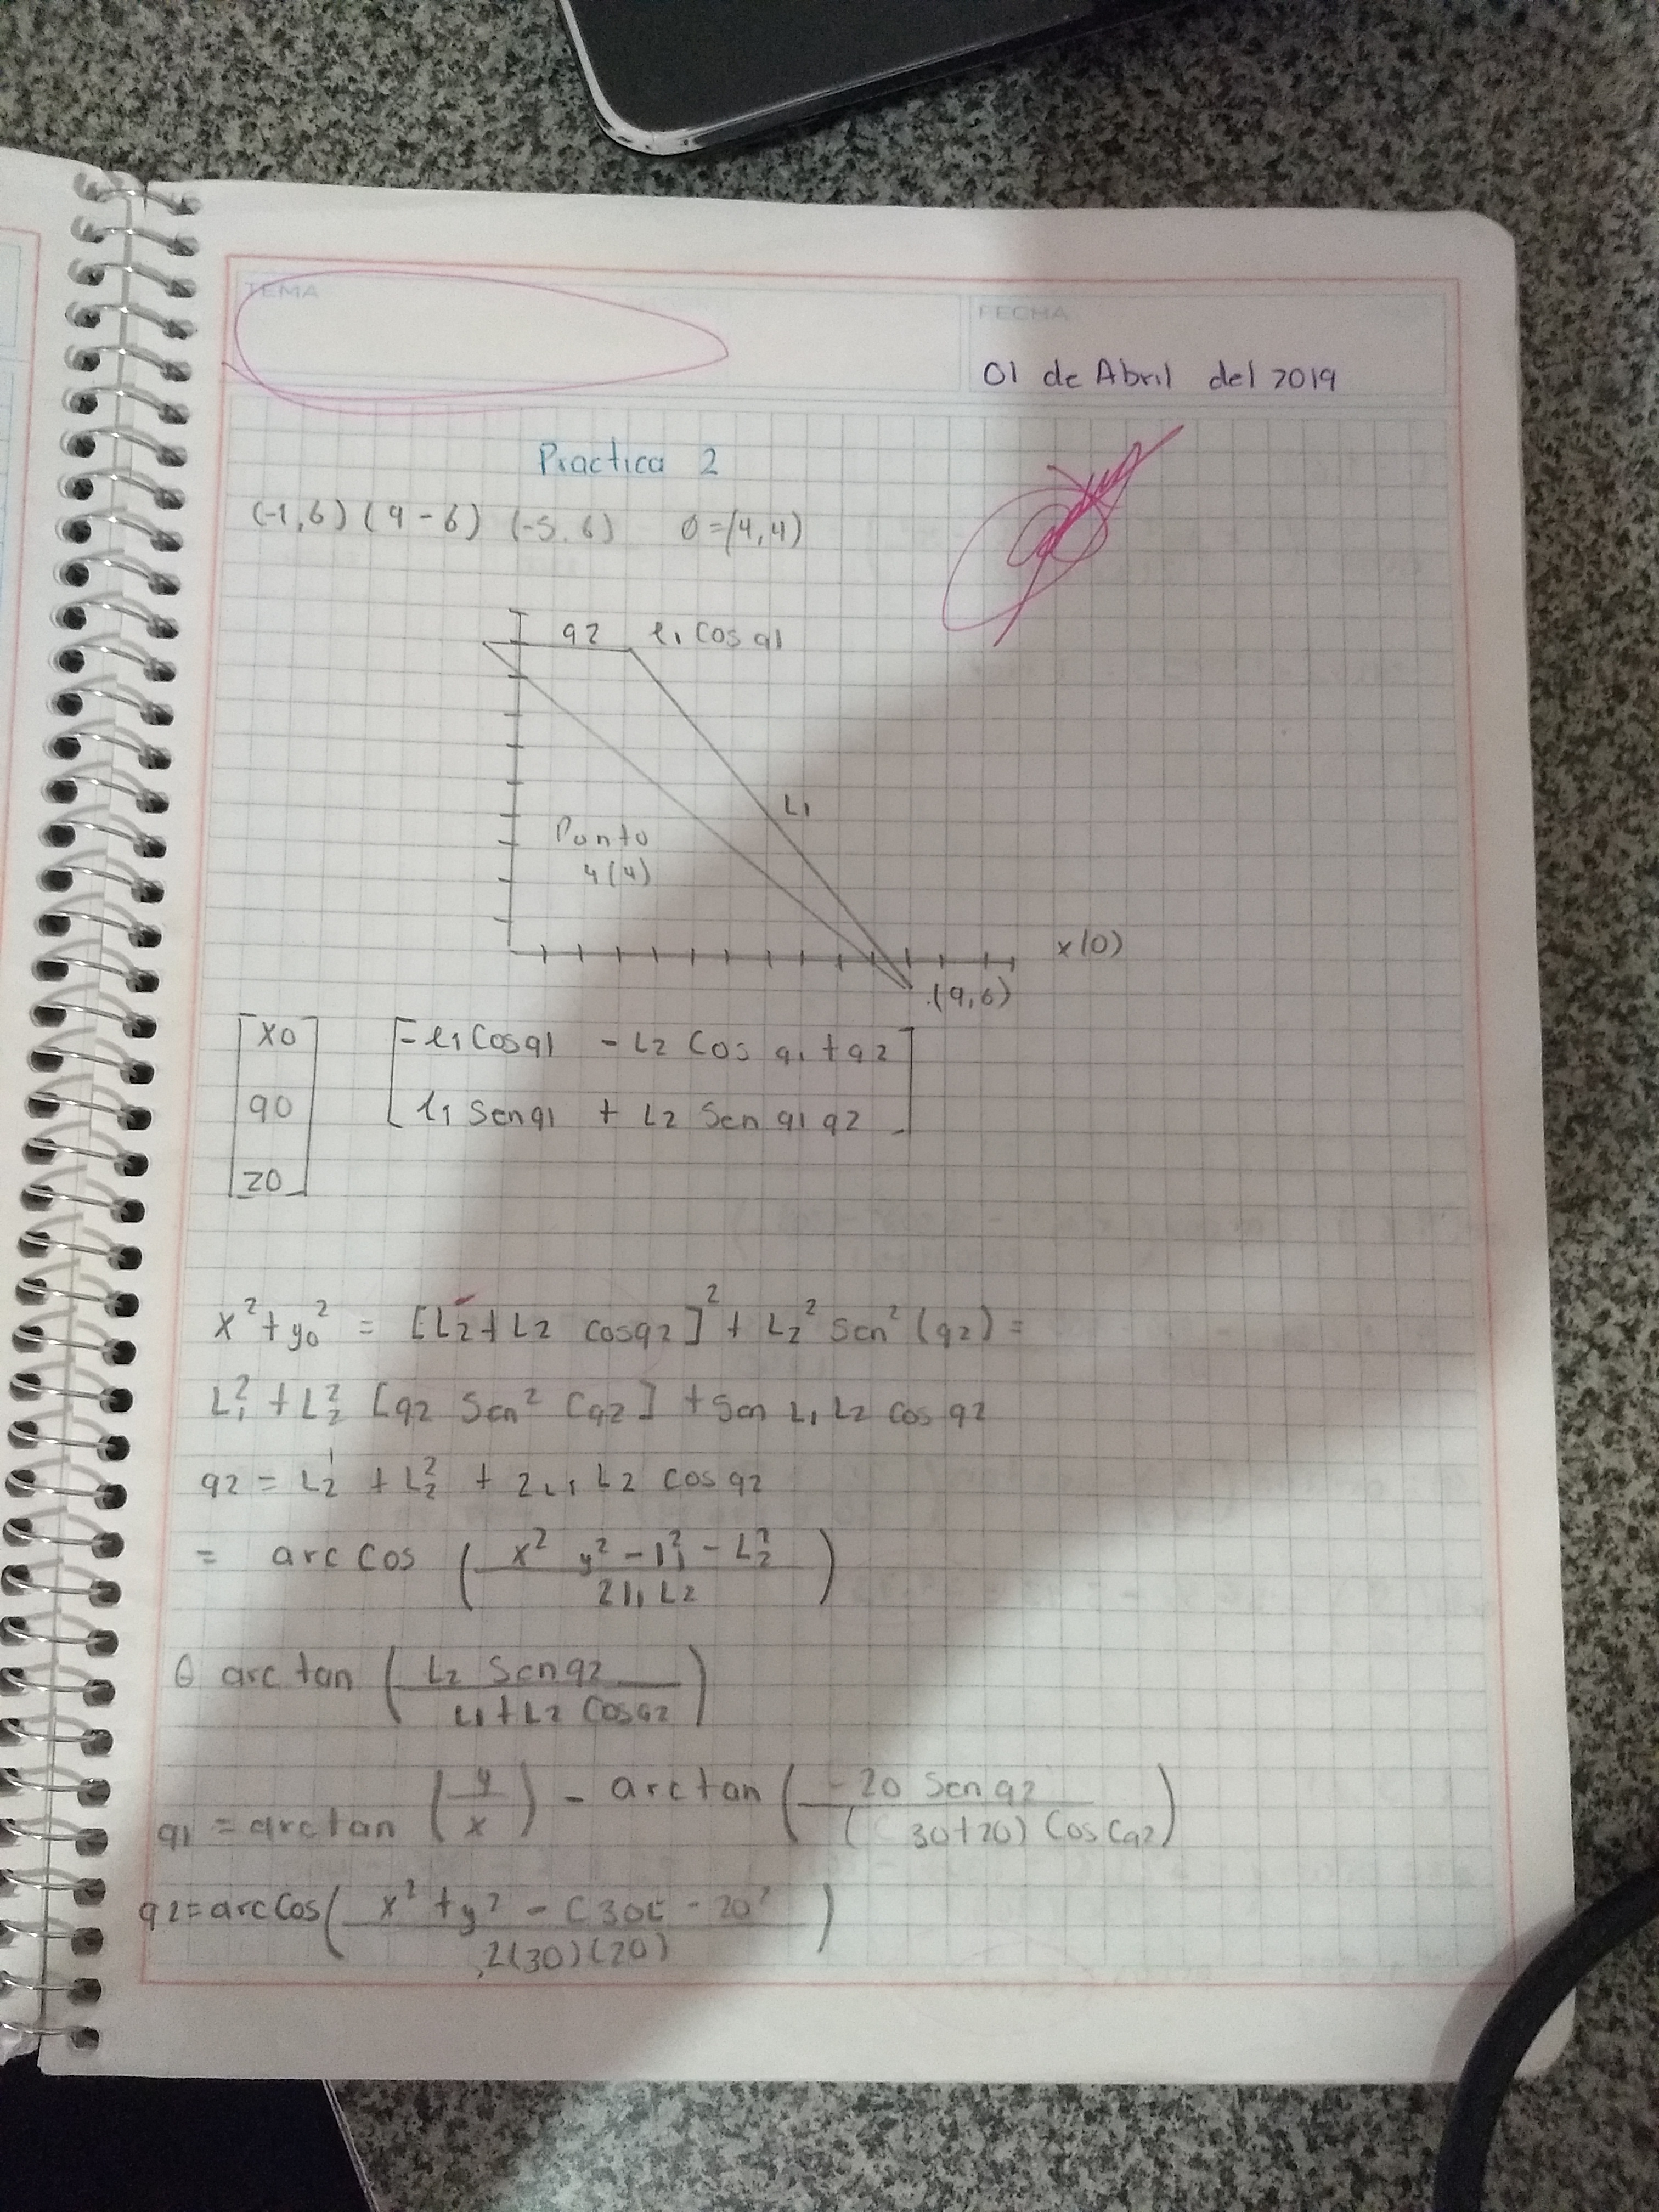 TEMA
FECHA
01 de Abril del 2019
Practica 2
(-1,6) (9-6) (-5.6) 0=(4,4)
q2 l1 Cos q1
L1
Punto
4(4)
x(0)
.(9,6)
[x0 [-l1 Cosq1 - L2 Cos q1 + q2]
q0 l1 Senq1 + L2 Sen q1 q2]
z0]
x² + y0² = [L2 + L2 cosq2]² + L2² Sen² (q2) =
L1² + L2² [q2 Sen² Cq2] + Sen L1 L2 cos q2
q2 = L2¹ + L2² + 2L1 L2 cos q2
= arc cos (x² y² - l1² - L2² / 2l1 L2)
θ arc tan (L2 Senq2 / L1 + L2 Cosq2)
q1 = arctan (y/x) - arctan (-20 Sen q2 / (30+20) Cos Cq2)
q2 = arc Cos (x² + y² - C30C - 20² / 2(30)(20))